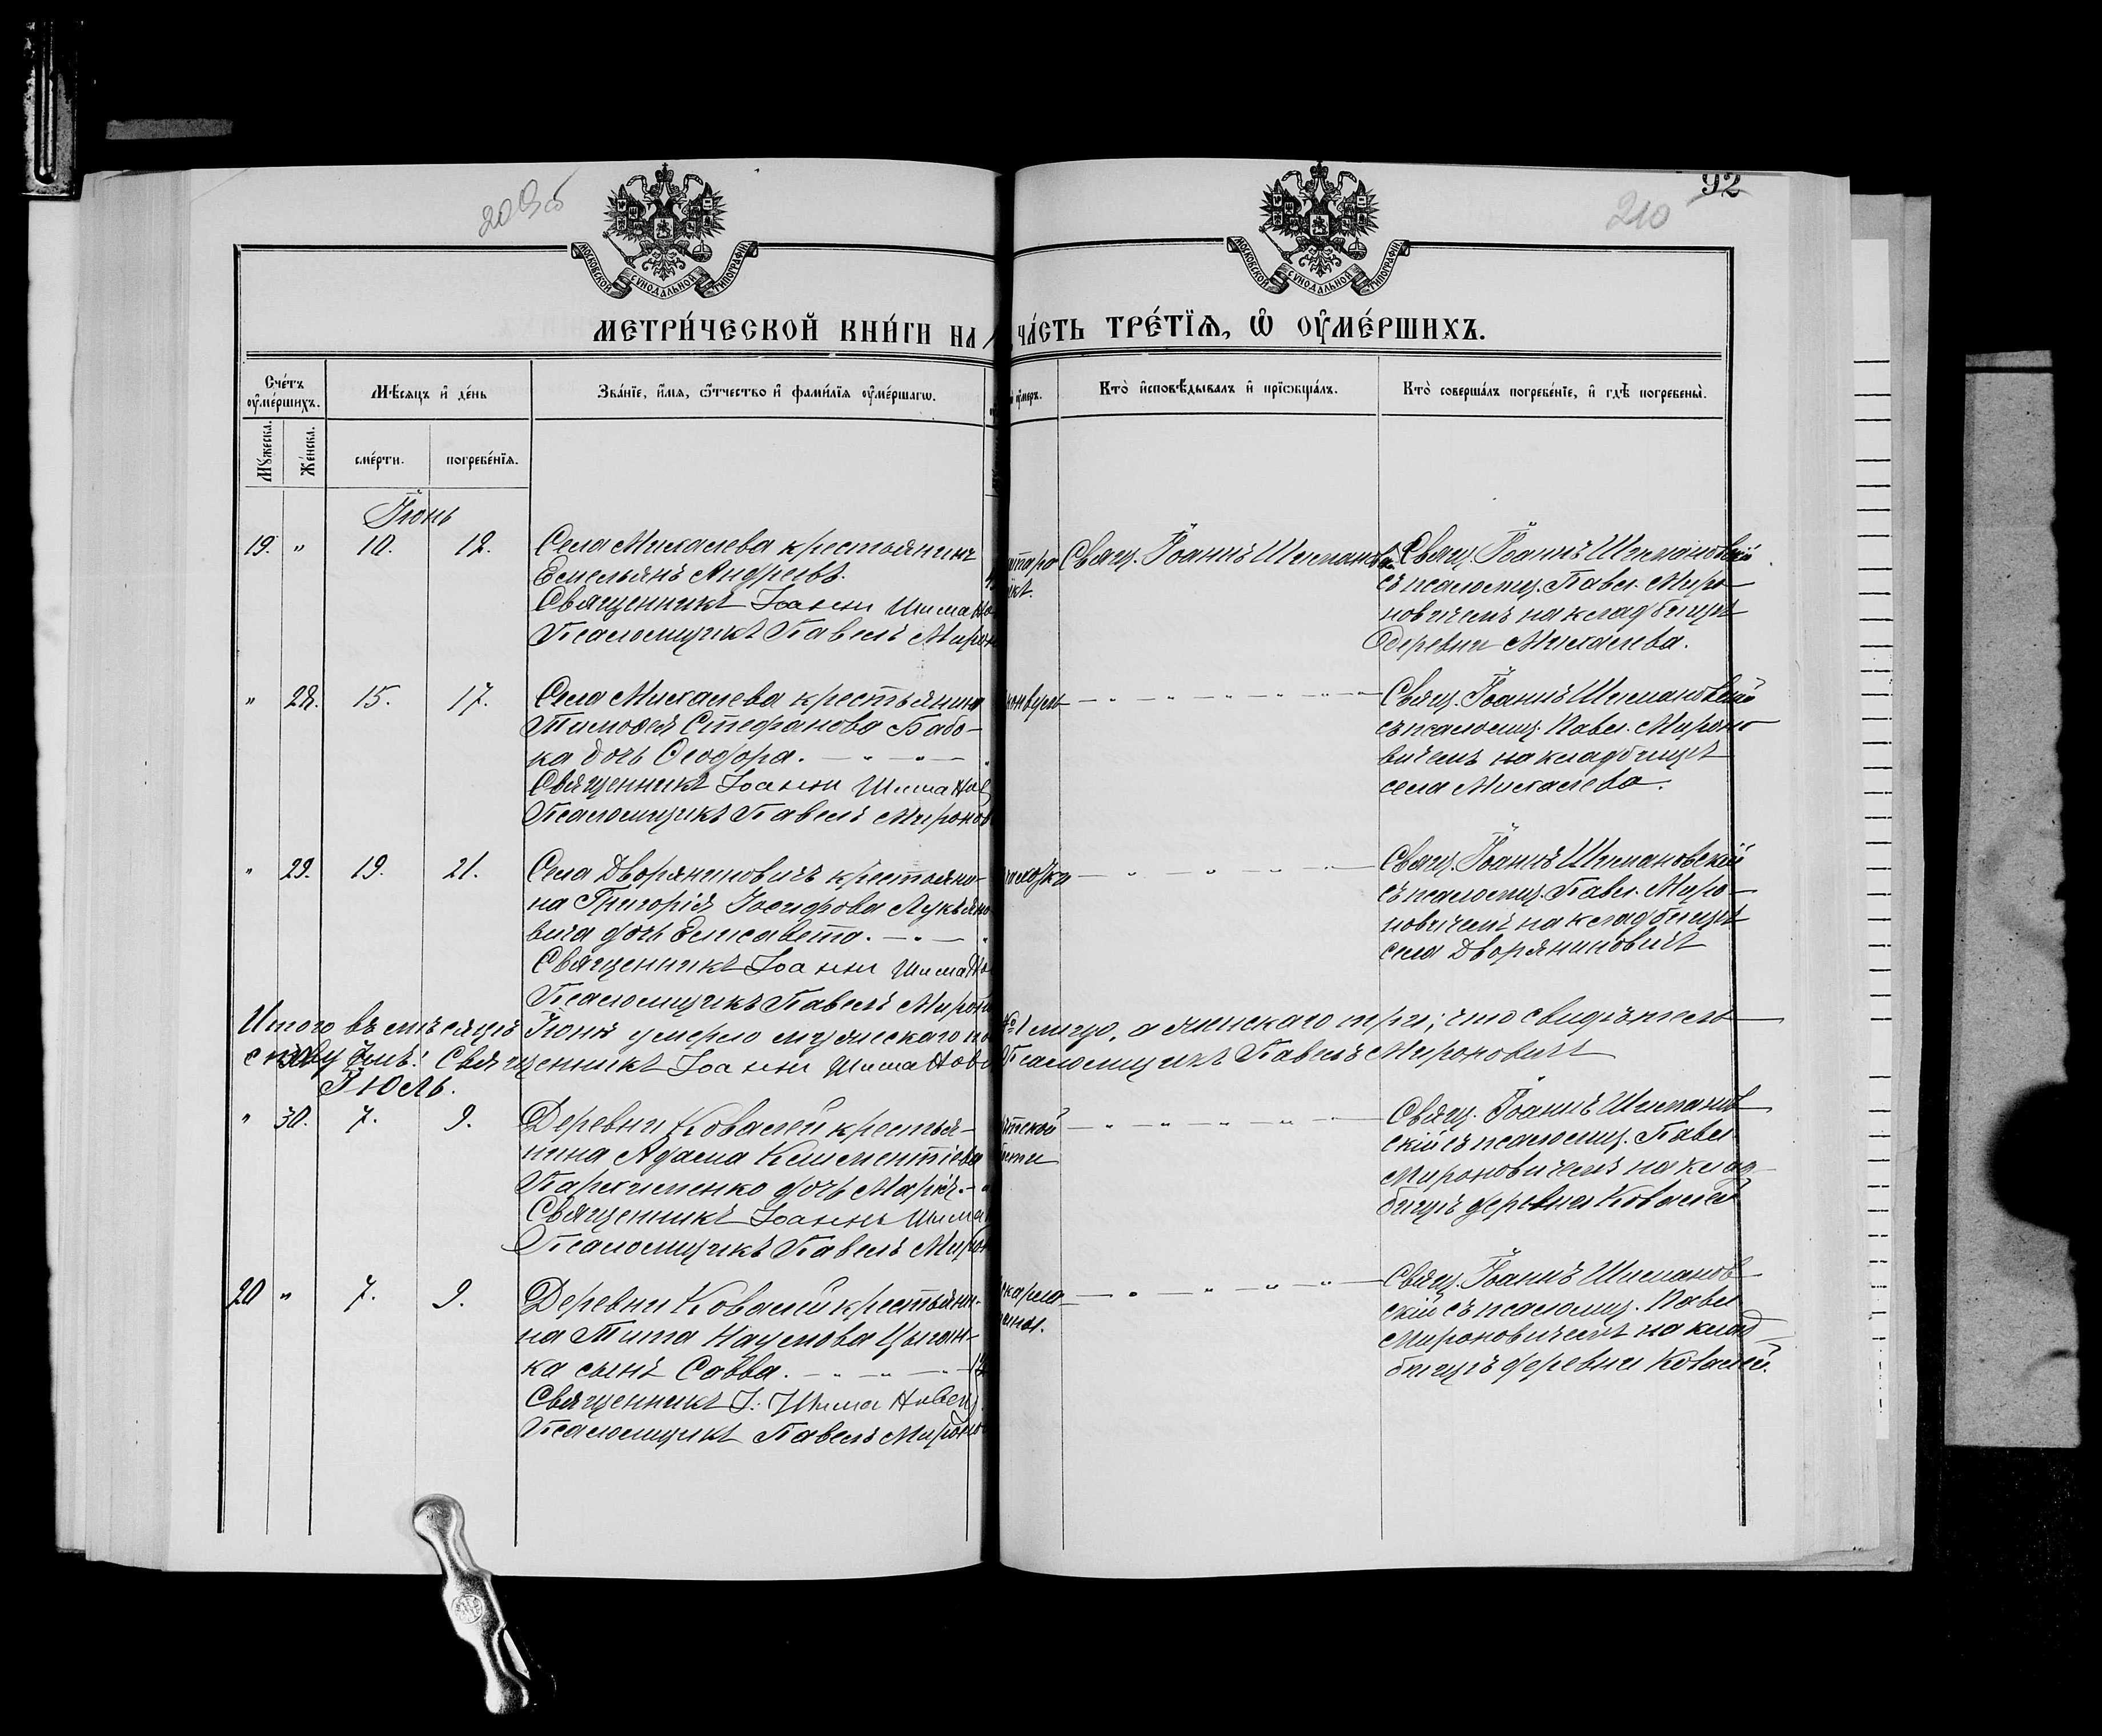 209 об
92
210
МОСКОВСКОЙ СѴНОДАЛЬНОЙ ТИПОГРАФІИ
МОСКОВСКОЙ СѴНОДАЛЬНОЙ ТИПОГРАФІИ
МЕТРИ́ЧЕСКОЙ КНИ́ГИ НА
ЧА́СТЬ ТРЕ́ТЇѦ, Ѡ҆ ОУ҆МЕ́РШИХЪ.
Сче́тъ оу҆ме́ршихъ.
Мѣ́сѧцъ и҆ де́нь
Зва́нїе, и҆́мѧ, ѻ҆́тчество и҆ фами́лїѧ оу҆ме́ршагѡ.
оу҆́меръ.
Кто̀ и҆сповѣ́дывалъ и҆ прїѡбща́лъ.
Кто̀ соверша́лъ погребе́нїе, и҆ гдѣ̀ погребены̀.
Мꙋ́жеска.
Же́нска.
сме́рти.
погребе́нїѧ.
Іюнь
19. " 10. 12.
Села Михалева крестьянинъ
Емельянъ Андреевъ.
Священникъ Іоаннъ Шимано
Псаломщикъ Павелъ Мирон
Свящ. Іоаннъ Шимановскій
Свящ. Іоаннъ Шимановскій
съ псаломщ. Павл. Миро-
новичемъ на кладбищѣ
деревни Михалева.
" 28. 15. 17.
Села Михалева крестьянина
Тимоѳея Стефанова Бабо-
ка дочь Ѳеодора.
Священникъ Іоаннъ Шиманов
Псаломщикъ Павелъ Миронов
конвуль
Свящ. Іоаннъ Шимановскій
съ псаломщ. Павл. Мироно-
вичемъ на кладбищѣ
села Михалева.
" 29. 19. 21.
Села Дворяниновичъ крестьяни-
на Григорія Іосифова Лукьяно
вича дочь Елисавета.
Священникъ Іоаннъ Шимано
Псаломщикъ Павелъ Мироно
Свящ. Іоаннъ Шимановскій
съ псаломщ. Павл. Миро-
новичемъ на кладбищѣ
села Дворяниновичъ
Итого въ мѣсяцѣ Іюнѣ умерло мужескаго по
1 лицо, а женскаго три; что свидѣтель
ствуемъ: Священникъ Іоаннъ Шиманов
Псаломщикъ Павелъ Мироновичъ
Іюль.
" 30. 7. 9.
Деревни Ковалей крестья-
нина Адама Климентіева
Пархименко дочь Марія.
Священникъ Іоаннъ Шима
Псаломщикъ Павелъ Мирон
Свящ. Іоаннъ Шиманов-
скій съ псаломщ. Павл.
Мироновичемъ на клад-
бищѣ деревни Ковалей
20 " 7. 9.
Деревни Ковалей крестьяни-
на Тита Наумова Цыган-
ка сынъ Савва.
Священникъ І. Шимановск
Псаломщикъ Павелъ Мироно
скарла
тины.
Свящ. Іоаннъ Шиманов-
скій съ псаломщ. Павл.
Мироновичемъ на клад-
бищѣ деревни Ковалей.